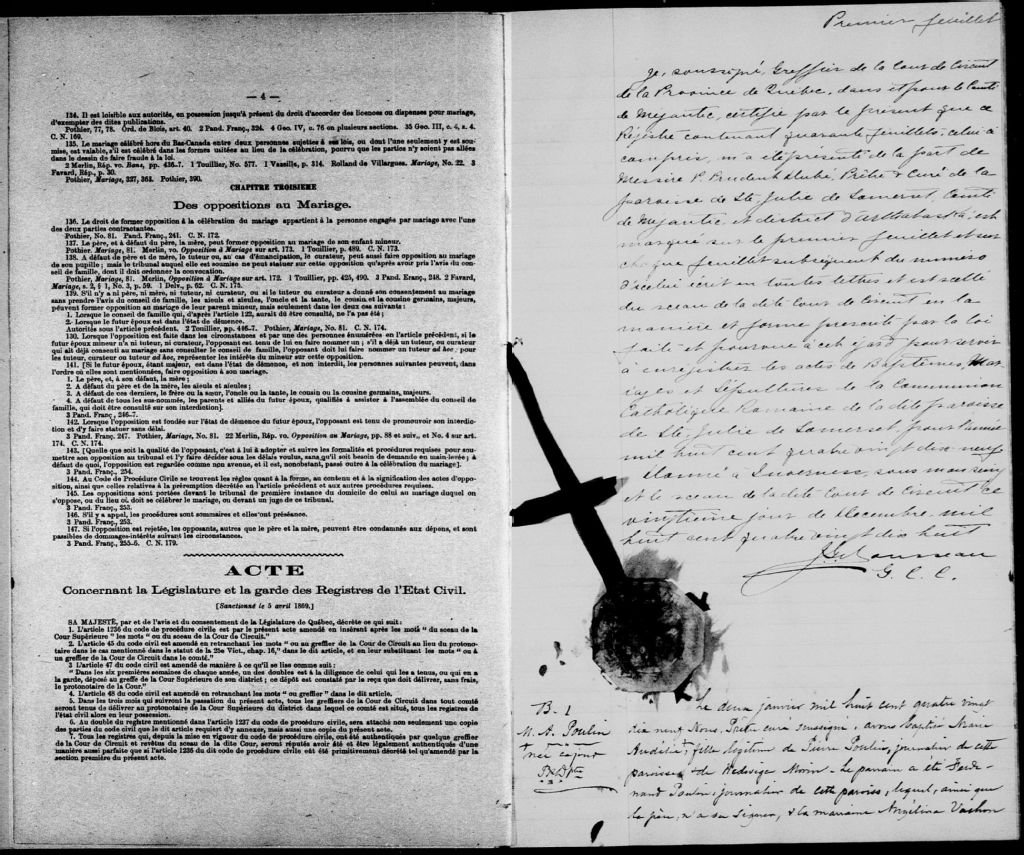 — 4 —
134. Il est loisible aux autorités, en possession jusqu'à présent du droit d'accorder des licences ou dispenses pour mariage,
d'exempter des dites publications.
Pothier, 77, 78. Ord. de Blois, art. 40. 2 Pand. Franç., 324. 4 Geo. IV, c. 76 en plusieurs sections. 35 Geo. III, c. 4, s. 4.
C. N. 169.
135. Le mariage célébré hors du Bas-Canada entre deux personnes sujettes à ses lois, ou dont l'une seulement y est sou-
mise, est valable, s'il est célébré dans les formes usitées au lieu de la célébration, pourvu que les parties n'y soient pas allées
dans le dessin de faire fraude à la loi.
2 Merlin, Rép. vo. Bans, pp. 436-7. 1 Touillier, No. 577. 1 Vaseille, p. 314. Rolland de Villargues. Mariage, No. 22. 3
Favard, Rép., p. 30.
Pothier, Mariage, 327, 361. Pothier, 390.
CHAPITRE TROISIEME
Des oppositions au Mariage.
136. Le droit de former opposition à la célébration du mariage appartient à la personne engagée par mariage avec l'une
des deux parties contractantes.
Pothier, No. 81. Pand. Franç., 241. C. N. 172.
137. Le père, et à défaut du père, la mère, peut former opposition au mariage de son enfant mineur.
Pothier. Mariage, 81. Merlin, vo. Opposition à Mariage sur art. 173. 1 Touillier, p. 489. C. N. 173.
138. A défaut de père et de mère, le tuteur ou, au cas d'émancipation, le curateur, peut aussi faire opposition au mariage
de son pupille; mais le tribunal auquel elle est soumise ne peut statuer sur cette opposition qu'après avoir pris l'avis du con-
seil de famille, dont il doit ordonner la convocation.
Pothier, Mariage, 81. Merlin, Opposition à Mariage sur art. 172. 1 Touillier, pp. 425, 490. 3 Pand. Franç., 248. 2 Favard,
Mariage, s. 2, § 1, No. 3, p. 59. 1 Delv., p. 62. C. N. 175.
139. S'il n'y a ni père, ni mère, ni tuteur, ni curateur, ou si le tuteur ou curateur a donné son consentement au mariage
sans prendre l'avis du conseil de famille, les aïeuls et aïeules, l'oncle et la tante, le cousin et la cousine germains, majeurs,
peuvent former opposition au mariage de leur parent mineur, mais seulement dans les deux cas suivants:
1. Lorsque le conseil de famille qui, d'après l'article 122, aurait dû être consulté, ne l'a pas été;
2. Lorsque le futur époux est dans l'état de démence.
Autorités sous l'article précédent. 2 Touillier, pp. 446-7. Pothier, Mariage, No. 81. C. N. 174.
130. Lorsque l'opposition est faite dans les circonstances et par une des personnes énumérées en l'article précédent, si le
futur époux mineur n'a ni tuteur, ni curateur, l'opposant est tenu de lui en faire nommer un; s'il a déjà un tuteur, ou curateur
qui ait déjà consenti au mariage sans consulter le conseil de famille, l'opposant doit lui faire nommer un tuteur ad hoc; pour
les tuteur, curateur ou tuteur ad hoc, représenter les intérêts du mineur sur cette opposition.
141. [Si le futur époux, étant majeur, est dans l'état de démence, et non interdit, les personnes suivantes peuvent, dans
l'ordre où elles sont mentionnées, faire opposition à son mariage.
1. Le père, et, à son défaut, la mère;
2. A défaut du père et de la mère, les aïeuls et aïeules;
3. A défaut de ces derniers, le frère ou la sœur, l'oncle ou la tante, le cousin ou la cousine germains, majeurs.
4. A défaut de tous les sus-nommés, les parents et alliés du futur époux, qualifiés à assister à l'assemblée du conseil de
famille, qui doit être consulté sur son interdiction].
3 Pand. Franç., 246-7.
142. Lorsque l'opposition est fondée sur l'état de démence du futur époux, l'opposant est tenu de promouvoir son interdic-
tion et d'y faire statuer sans délai.
3 Pand. Franç. 247. Pothier, Mariage, No. 81. 22 Merlin, Rép. vo. Opposition au Mariage, pp. 88 et suiv., et No. 4 sur art.
174. C. N. 174.
143. [Quelle que soit la qualité de l'opposant, c'est à lui à adopter et suivre les formalités et procédures requises pour sou-
mettre son opposition au tribunal et l'y faire décider sous les délais voulus, sans qu'il soit besoin de demande en main-levée; à
défaut de quoi, l'opposition est regardée comme non avenue, et il est, nonobstant, passé outre à la célébration du mariage].
3 Pand. Franç., 254.
144. Au Code de Procédure Civile se trouvent les règles quant à la forme, au contenu et à la signification des actes d'oppo-
sition, ainsi que celles relatives à la péremption décrétée en l'article précédent et aux autres procédures requises.
145. Les oppositions sont portées devant le tribunal de première instance du domicile de celui au mariage duquel on
s'oppose, ou du lieu où doit se célébrer le mariage, ou devant un juge de ce tribunal.
3 Pand. Franç., 253.
146. S'il y a appel, les procédures sont sommaires et elles ont préséance.
3 Pand. Franç., 253.
147. Si l'opposition est rejetée, les opposants, autres que le père et la mère, peuvent être condamnés aux dépens, et sont
passibles de dommages-intérêts suivant les circonstances.
3 Pand. Franç., 255-6. C. N. 179.
ACTE
Concernant la Législature et la garde des Registres de l'Etat Civil.
[Sanctionné le 5 avril 1869.]
SA MAJESTÉ, par et de l'avis et du consentement de la Législature de Québec, décrète ce qui suit:
1. L'article 1236 du code de procédure civile est par le présent acte amendé en insérant après les mots " du sceau de la
Cour Supérieure " les mots " ou du sceau de la Cour de Circuit."
2. L'article 45 du code civil est amendé en retranchant les mots " ou au greffier de la Cour de Circuit au lieu du protono-
taire dans le cas mentionné dans le statut de la 25e Vict., chap. 16," dans le dit article, et en leur substituant les mots " ou à
un greffier de la Cour de Circuit dans le comté."
3 L'article 47 du code civil est amendé de manière à ce qu'il se lise comme suit:
" Dans les six premières semaines de chaque année, un des doubles est à la diligence de celui qui les a tenus, ou qui en a
la garde, déposé au greffe de la Cour Supérieure de son district; ce dépôt est constaté par le reçu que doit délivrer, sans frais,
le protonotaire de la Cour."
4. L'article 48 du code civil est amendé en retranchant les mots " ou greffier " dans le dit article.
5. Dans les trois mois qui suivront la passation du présent acte, tous les greffiers de la Cour de Circuit dans tout comté
seront tenus de délivrer au protonotaire de la Cour Supérieure du district dans lequel ce comté est situé, tous les registres de
l'état civil alors en leur possession.
6. Au double du registre mentionné dans l'article 1237 du code de procédure civile, sera attaché non seulement une copie
des parties du code civil que le dit article requiert d'y annexer, mais aussi une copie du présent acte.
7. Tous les registres qui, depuis la mise en vigueur du code de procédure civile, ont été authentiqués par quelque greffier
de la Cour de Circuit et revêtus du sceau de la dite Cour, seront réputés avoir été et être légalement authentiqués d'une
manière aussi parfaite que si l'article 1236 du dit code de procédure civile eut été primitivement décrété tel qu'amendé par la
section première du présent acte.
Premier feuillet
Je, soussigné, Greffier de la Cour de Circuit
de la Province de Quebec, dans et pour le Comté
de Megantic, certifie par le présent que ce
Régistre contenant quarante feuillets, celui-ci
compris, m'a été présenté de la part de
Messire P. Prudent Dubé, Prêtre & Curé de la
paroisse de Ste Julie de Somerset, Comté
de Megantic et district d'Arthabaska; est
marqué sur le premier feuillet et sur
chaque feuillet subséquent du numéro
d'icelui écrit en toutes lettres et est scellé
du sceau de la dite Cour de Circuit en la
manière et forme prescrite par la loi
faite et pourvue à cet égard pour servir
à enregistrer les actes de Baptêmes, Mar
iages et Sépultures de la Communion
Catholique Romaine de la dite paroisse
de Ste Julie de Somerset, pour l'année
mil huit cent quatre vingt dix neuf
Donné à Inverness, sous mon seing
et le sceau de la dite Cour de Circuit ce
vingtième jour de Décembre mil
huit cent quatre vingt dix huit
Rousseau
G. C. C.
B-1
M. A. Poulin
née ce jour
Le deux janvier mil huit cent quatre vingt
dix neuf Nous, Prêtre curé soussigné, avons baptisé Marie
fille légitime de Pierre Poulin, journalier de cette
paroisse & de Hedwige Morin. Le parrain a été Ferdi-
nand Poulin, journalier de cette paroisse, lequel, ainsi que
le père, n'a su signer, & la marraine Angélina Vachon